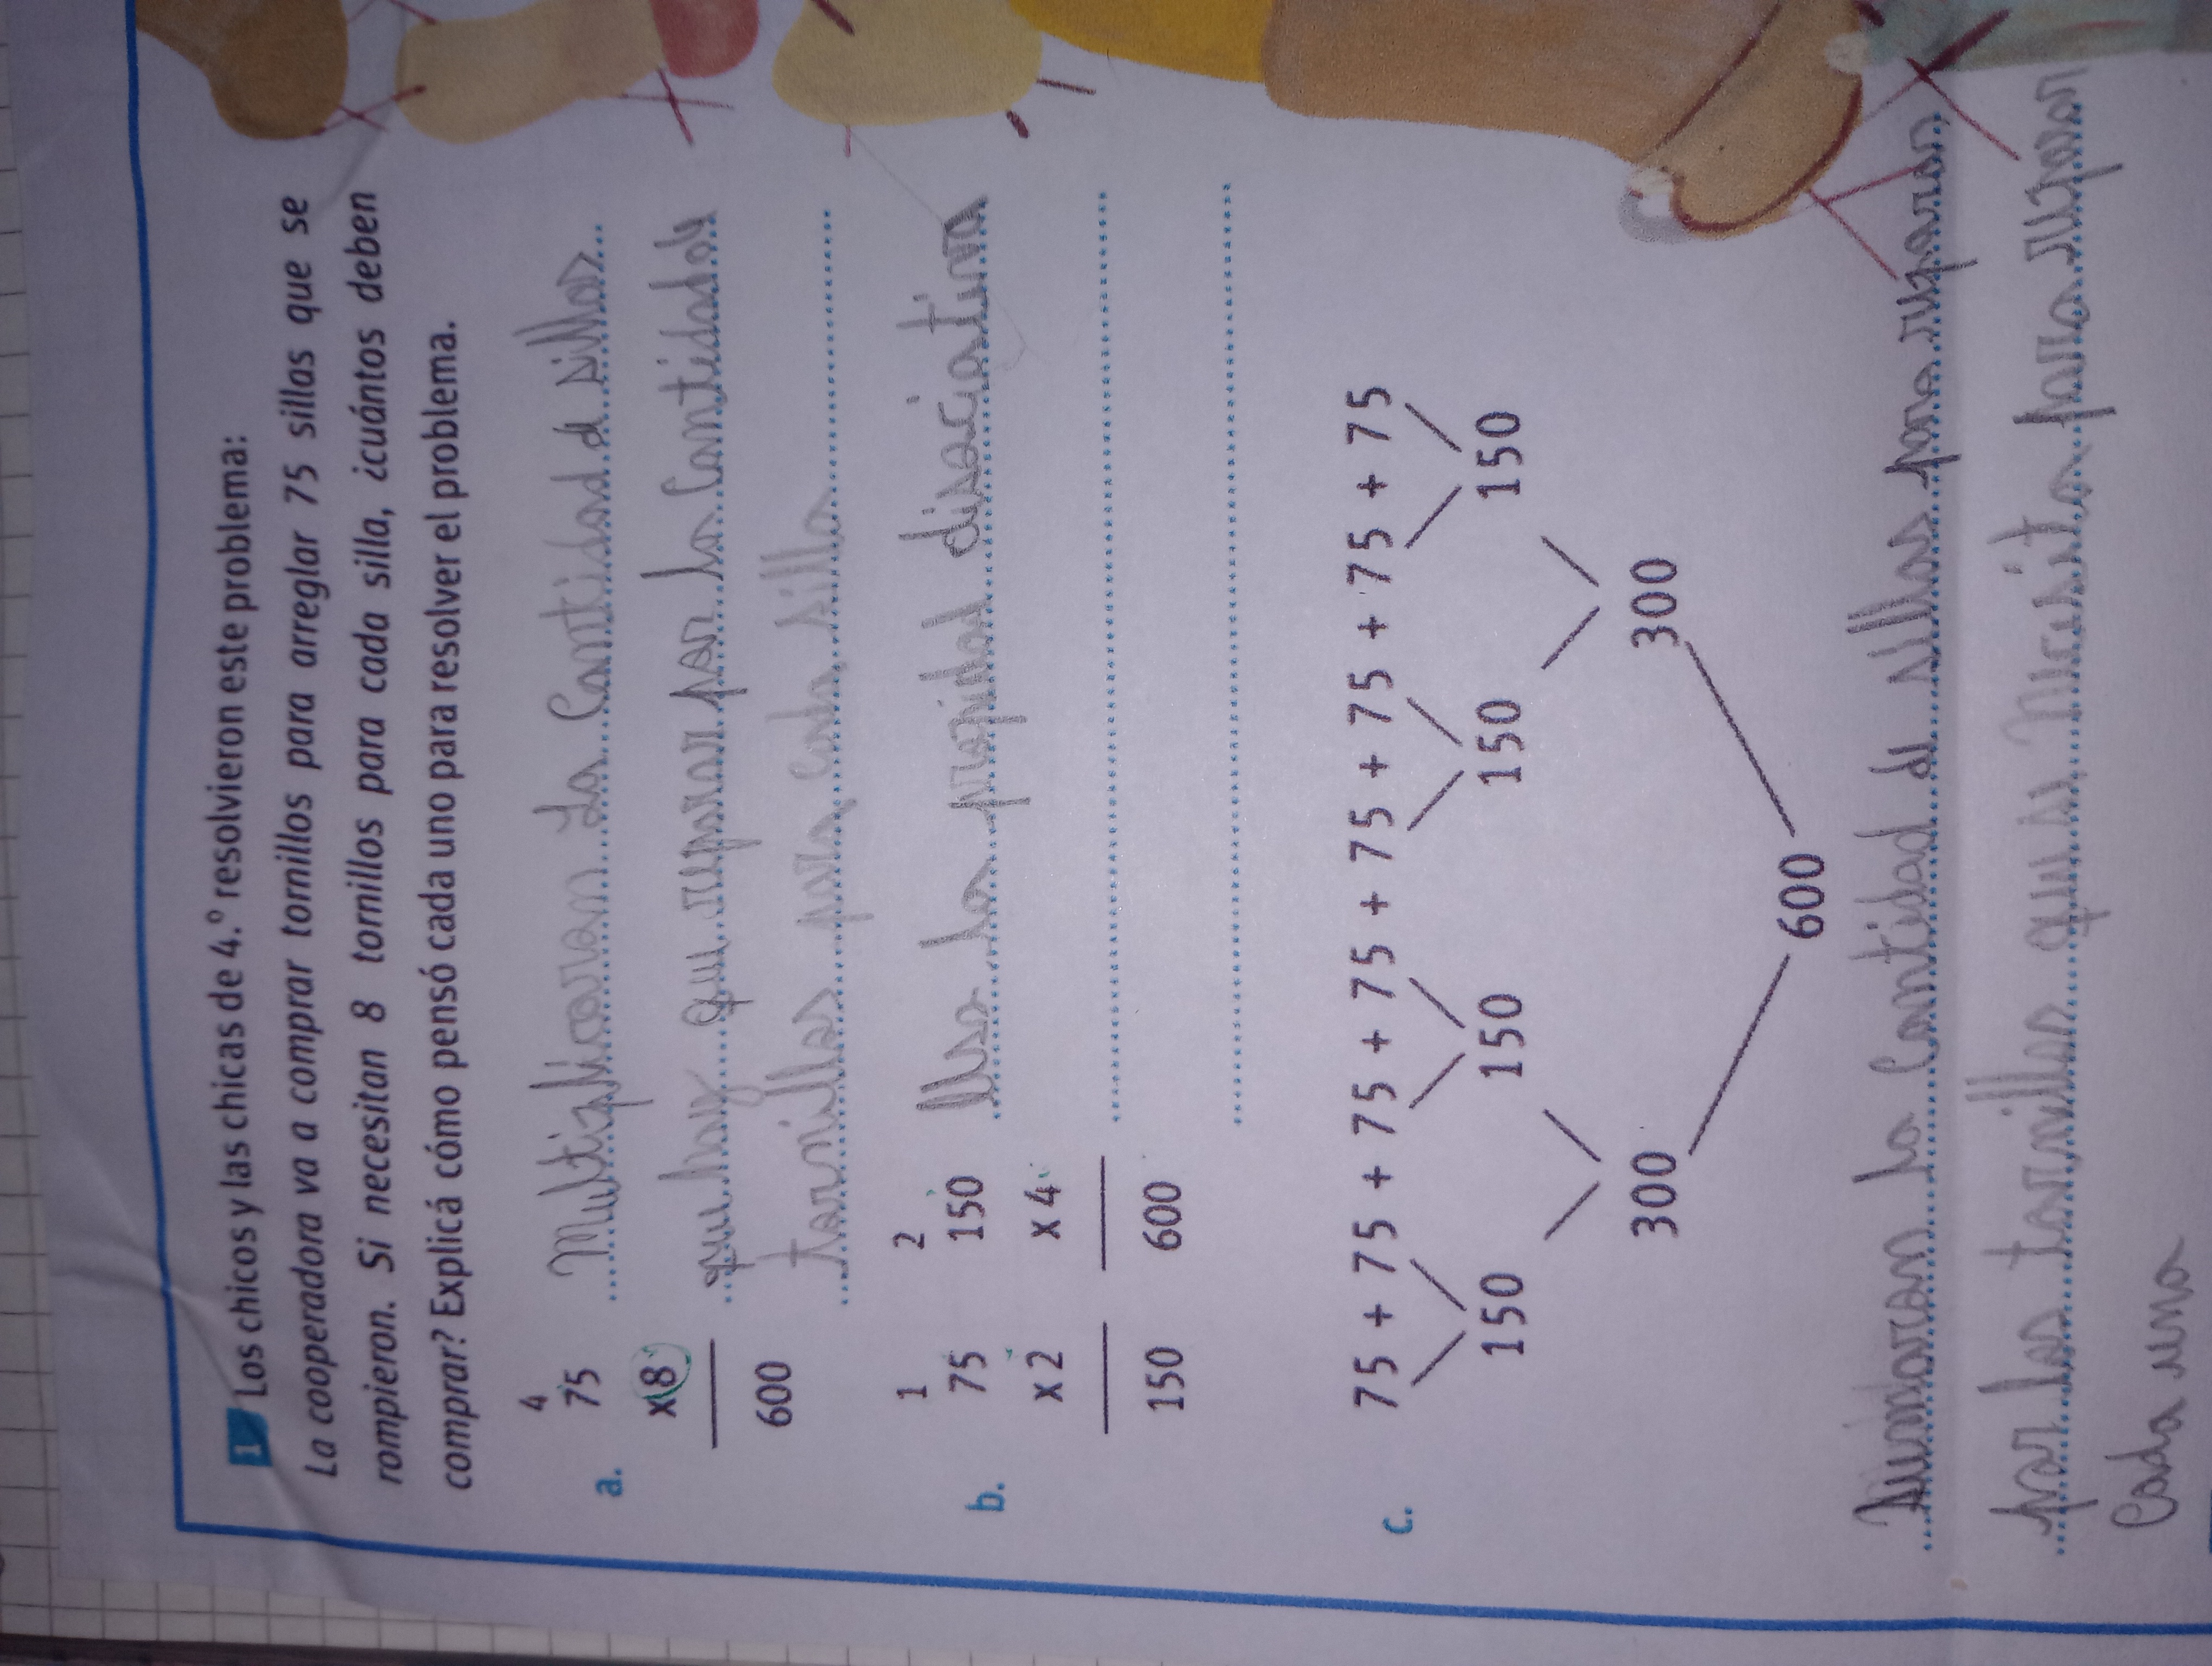 1 Los chicos y las chicas de 4.º resolvieron este problema:
La cooperadora va a comprar tornillos para arreglar 75 sillas que se
rompieron. Si necesitan 8 tornillos para cada silla, ¿cuántos deben
comprar? Explicá cómo pensó cada uno para resolver el problema.
4
75
a.
x 8
600
Multiplicaron La Cantidad d sillas
que hay que reparar por la Cantidad de
tornillos para cada silla
1 2
75 150
b.
x 2 x 4
150 600
Usa la propidad disociativa
c. 75 + 75 + 75 + 75 + 75 + 75 + 75 + 75
150 150 150 150
300 300
600
Sumaron la Cantidad de sillas para reparar
por los tornillos que se necesita para reparar
Cada una